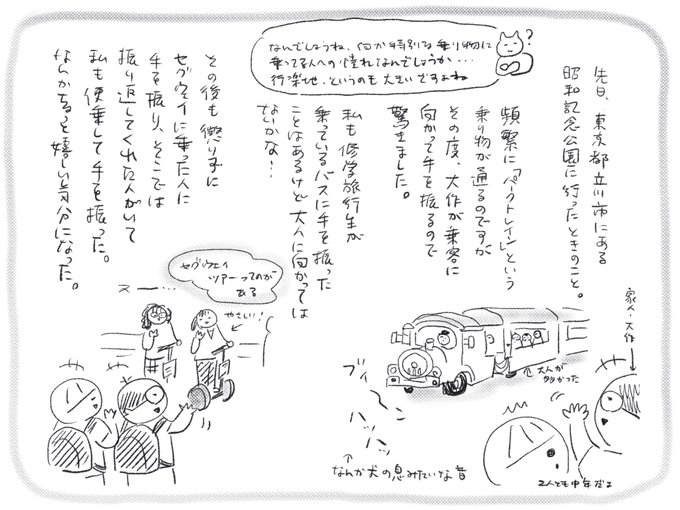 先日、東京都立川市にある
昭和記念公園に行ったときのこと。
頻繁に「パークトレイン」という
乗り物が通るのですが
その度、大作が乗客に
向かって手を振るので
驚きました。
私も修学旅行生が
乗っているバスに手を振った
ことはあるけど大人に向かっては
ないかな…
なんでしょうね、何か特別な乗り物に
乗ってる人への憧れなんでしょうか…
行楽地、というのも大きいですよね
?
家人・大作
大人が
多かった
ブィーン
ハッハッ
↑
なんか犬の息みたいな音
2人とも中年だよ
その後も懲りずに
セグウェイに乗った人に
手を振り、そこでは
振り返してくれた人がいて
私も便乗して手を振った。
なんかちょっと嬉しい気分になった。
セグウェイ
ツアーってのが
ある
スー…
やさしい!